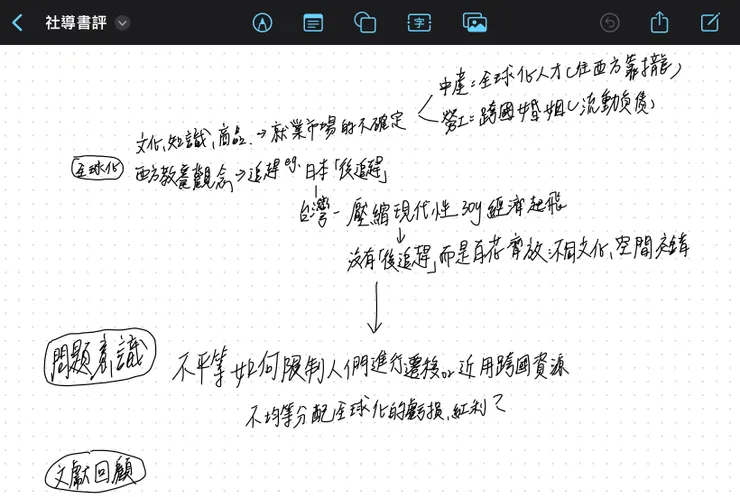 社導書評
中產=全球化人才(往西方靠攏)
文化、知識、商品.→就業市場的不確定
勞工=跨國婚姻(流動負債)
全球化
西方教養觀念→追趕 eg. 日本「後追趕」
台灣-壓縮現代性 30y經濟起飛
沒有「後追趕」而是百花齊放:不同文化、空間交錯
問題意識
不平等如何限制人們進行遷移or近用跨國資源
不均等分配全球化的虧損、紅利?
文獻回顧